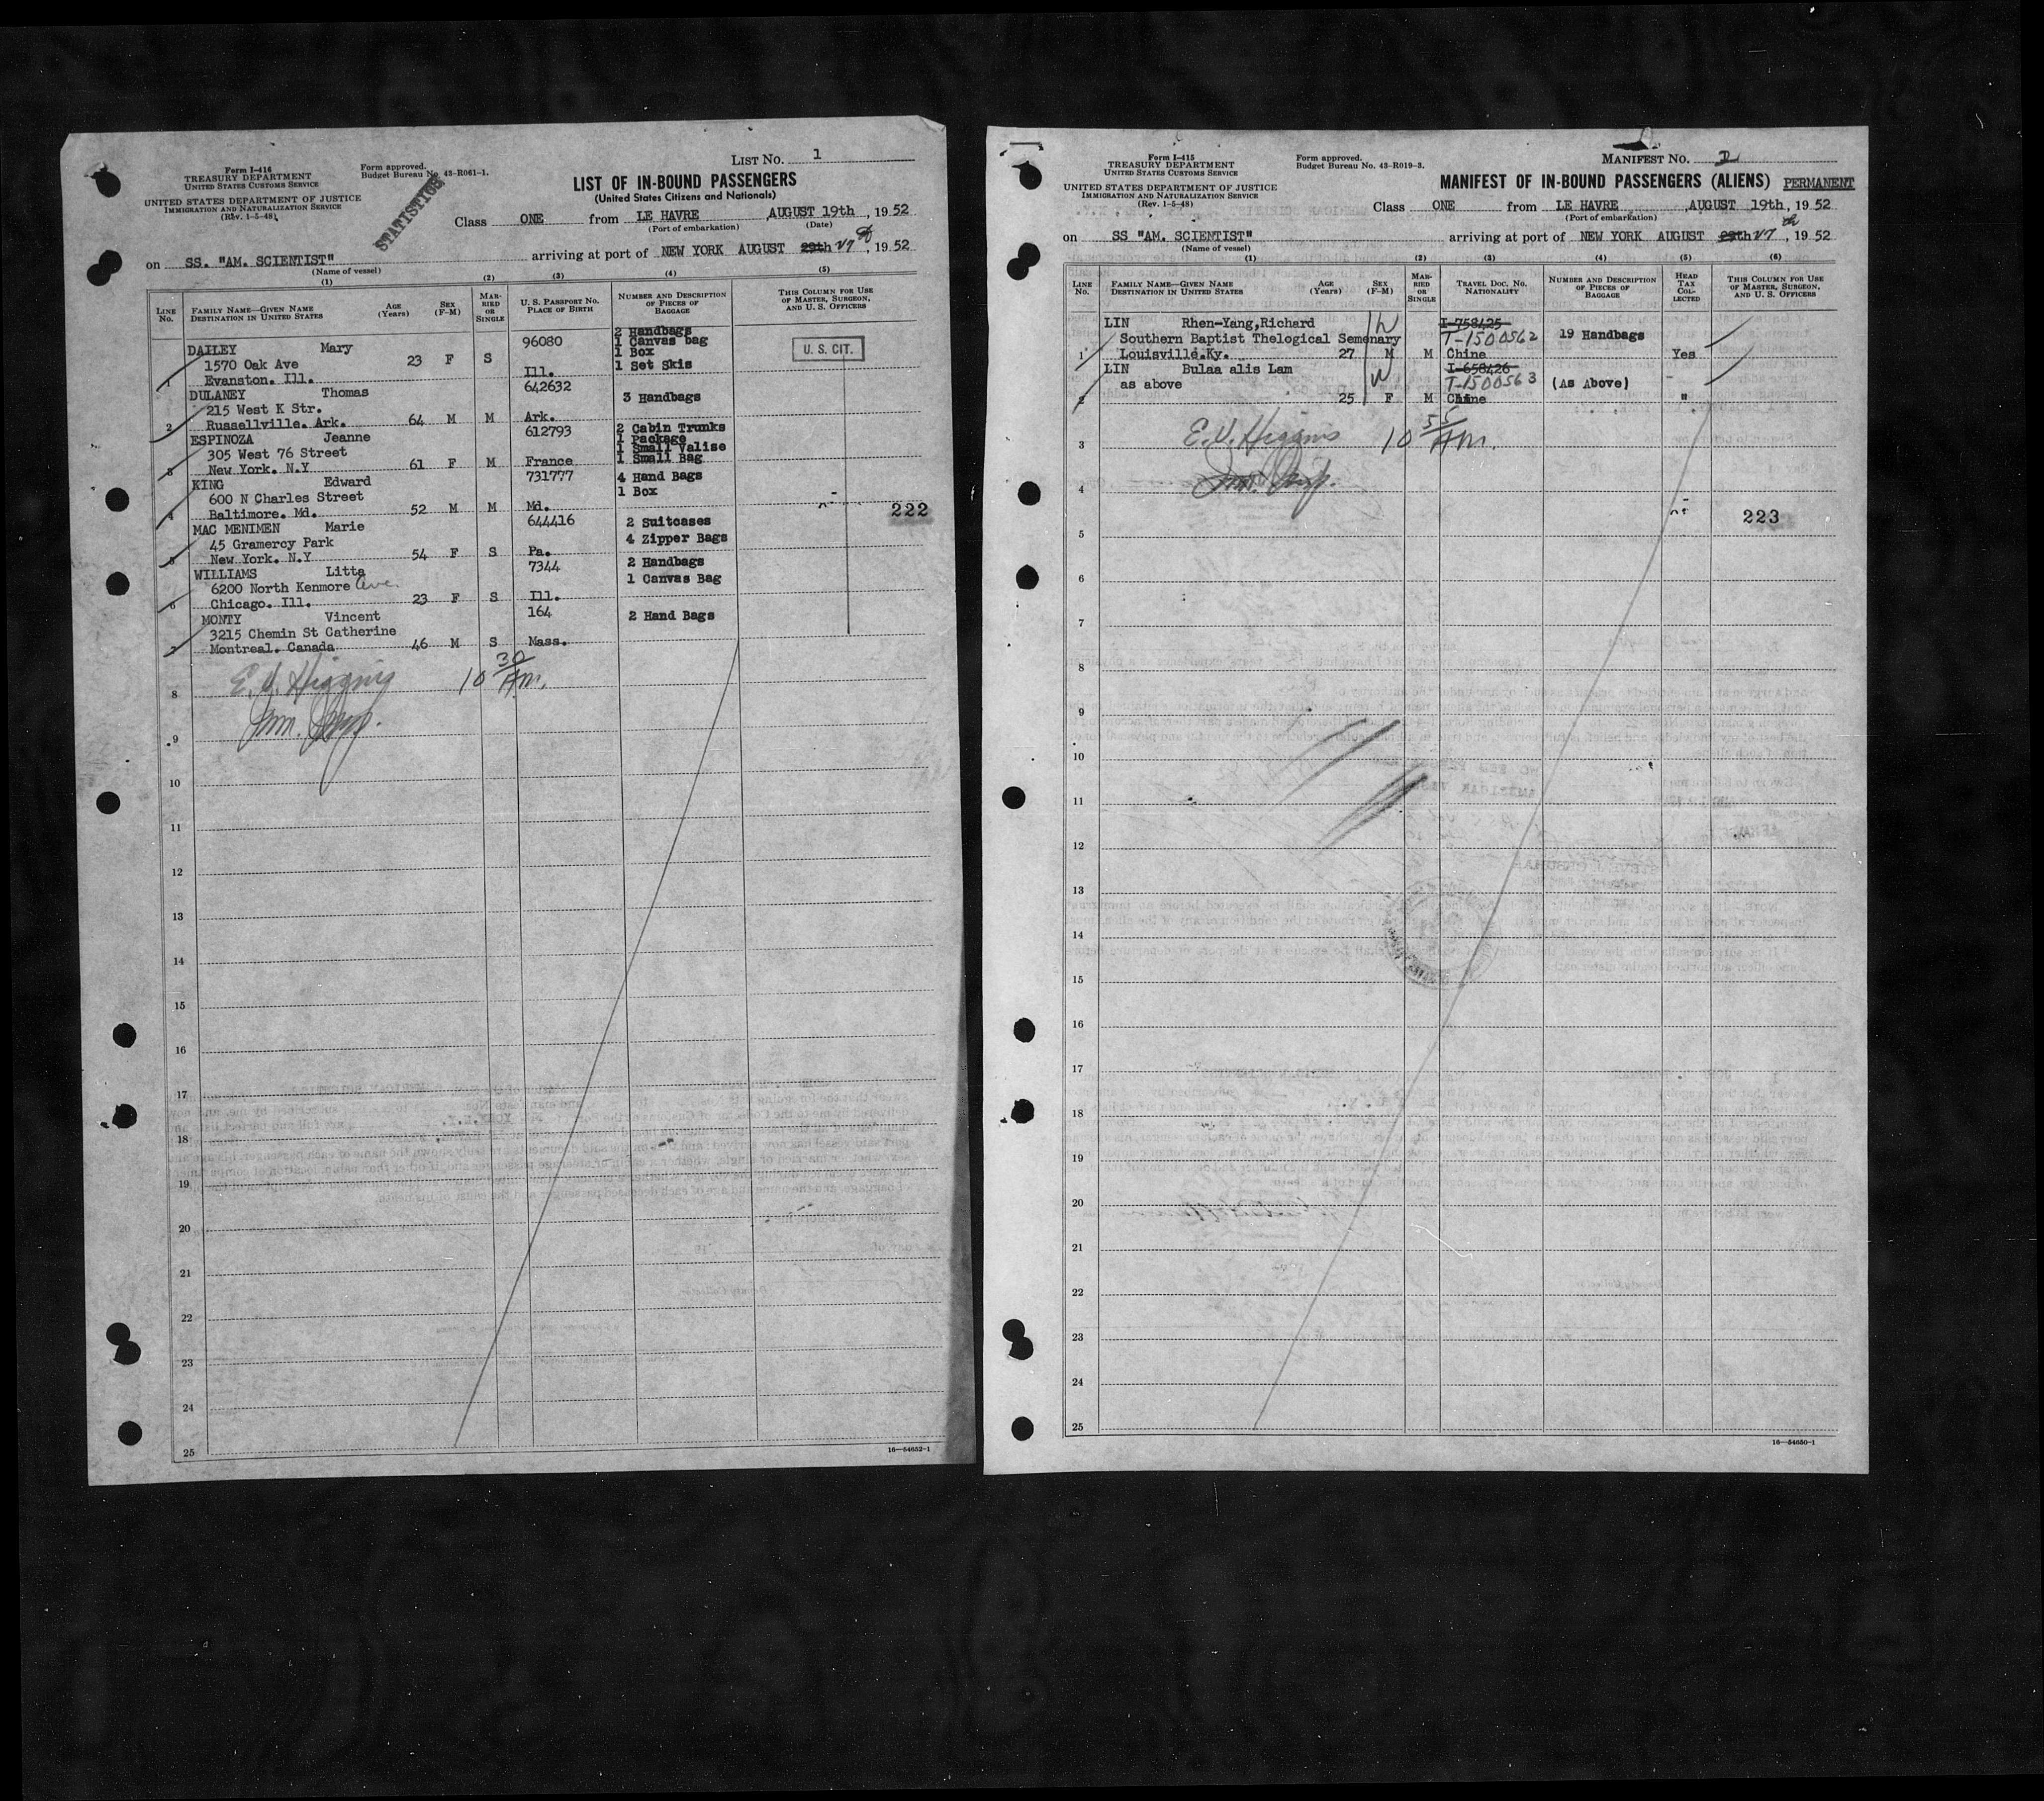 Form I-416
TREASURY DEPARTMENT
UNITED STATES CUSTOMS SERVICE
UNITED STATES DEPARTMENT OF JUSTICE
IMMIGRATION AND NATURALIZATION SERVICE
(Rev. 1-5-48)
Form approved.
Budget Bureau No. 43-R061-1.
STATISTICS
LIST NO. 1
LIST OF IN-BOUND PASSENGERS
(United States Citizens and Nationals)
Class ONE from LE HAVRE, AUGUST 19th, 1952
(Port of embarkation) (Date)
on SS. "AM. SCIENTIST" arriving at port of NEW YORK AUGUST 29th 27th, 1952
(Name of vessel)
(1) (2) (3) (4) (5)
LINE No. FAMILY NAME—GIVEN NAME DESTINATION IN UNITED STATES AGE (Years) SEX (F-M) MARRIED OR SINGLE U. S. PASSPORT NO. PLACE OF BIRTH NUMBER AND DESCRIPTION OF PIECES OF BAGGAGE THIS COLUMN FOR USE OF MASTER, SURGEON, AND U. S. OFFICERS
2 Handbags
DAILEY Mary 96080 1 Canvas bag
1570 Oak Ave 23 F S 1 Box U. S. CIT.
1 Evanston. Ill. Ill. 1 Set Skis
DULANEY Thomas 642632
215 West K Str. 3 Handbags
2 Russellville. Ark. 64 M M Ark.
ESPINOZA Jeanne 612793 2 Cabin Trunks
1 Package
305 West 76 Street 1 Small Valise
3 New York. N.Y 61 F M France 1 Small Bag
KING Edward 731777 4 Hand Bags
600 N Charles Street 1 Box
4 Baltimore. Md. 52 M M Md. 222
MAC MENIMEN Marie 644416 2 Suitcases
45 Gramercy Park 4 Zipper Bags
5 New York. N.Y 54 F S Pa.
WILLIAMS Litta 7344 2 Handbags
6200 North Kenmore Ave. 1 Canvas Bag
6 Chicago. Ill. 23 F S Ill.
MONTY Vincent 164 2 Hand Bags
3215 Chemin St Catherine
7 Montreal. Canada 46 M S Mass.
8 E. V. Higgins 10 30 AM.
Imm. Insp.
9
10
11
12
13
14
15
16
17
18
19
20
21
22
23
24
25
16—54652-1
Form I-415
TREASURY DEPARTMENT
UNITED STATES CUSTOMS SERVICE
UNITED STATES DEPARTMENT OF JUSTICE
IMMIGRATION AND NATURALIZATION SERVICE
(Rev. 1-5-48)
Form approved.
Budget Bureau No. 43-R019-3.
MANIFEST NO.
MANIFEST OF IN-BOUND PASSENGERS (ALIENS) PERMANENT
Class ONE from LE HAVRE, AUGUST 19th, 1952
(Port of embarkation)
on SS "AM. SCIENTIST" arriving at port of NEW YORK AUGUST 29th 27th, 1952
(Name of vessel)
(1) (2) (3) (4) (5) (6)
LINE No. FAMILY NAME—GIVEN NAME DESTINATION IN UNITED STATES AGE (Years) SEX (F-M) MARRIED OR SINGLE TRAVEL DOC. NO. NATIONALITY NUMBER AND DESCRIPTION OF PIECES OF BAGGAGE HEAD TAX COLLECTED THIS COLUMN FOR USE OF MASTER, SURGEON, AND U. S. OFFICERS
LIN Rhen-Yang,Richard I-758425
Southern Baptist Thelogical Semenary T-1500562 19 Handbags
1 Louisville.Ky. 27 M M Chine Yes
LIN Bulaa alis Lam I-658426
as above T-1500563 (As Above)
2 25 F M Chine "
3 E. V. Higgins 10 55 AM.
4 Imm. Insp.
223
5
6
7
8
9
10
11
12
13
14
15
16
17
18
19
20
21
22
23
24
25
16—54650-1